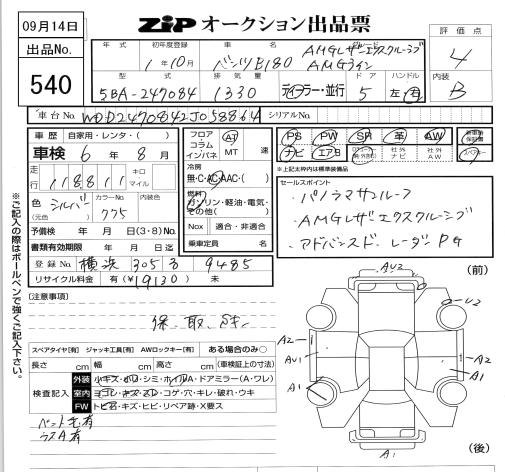 09月14日
出品No.
540
ZIP オークション出品票
年式 初年度登録 車名 グレード
1年10月 ベンツB180 AMGレザーエクスクルーシブ
AMGライン
型式 排気量 ドア ハンドル
5BA-247084 1330 ディーラー・並行 5 左・右
評価点
4
内装
B
車台No. W1OD2470842J058864 シリアルNo.
車歴 自家用・レンタ・( )
車検 6年 8月
走行 118811 キロ マイル
色 シルバー カラーNo. 775 内装色
(元色 )
予備検 年 月 日(3・8)No.
書類有効期限 年 月 日迄
登録No. 横浜 305 9485
リサイクル料金 有(¥19130) 未
フロア コラム インパネ AT MT 速
冷房
無・C・AC・AAC・( )
燃料
ガソリン・軽油・電気・その他( )
Nox 適合・非適合
乗車定員 名
PS PW SR 革 AW 新車時保証書
ナビ エアB 社外ナビ 社外AW
*上記太枠内は標準装備品
セールスポイント
・パノラマサンルーフ
・AMGレザーエクスクルーシブ
・アドバンスド、レーダーPG
(注意事項)
保、取、
スペアタイヤ[有] ジャッキ工具[有] AWロックキー[有] ある場合のみ○
長さ cm 幅 cm 高さ cm (車検証の寸法)
検査記入
外装 小キズ・凹ワ・シミ・ホイルA・ドアミラー(A・ワレ)
室内 ヨゴレ・キズ・スレ・コゲ・穴・キレ・破れ・ウキ
FW トビ石・キズ・ヒビ・リペア跡・X要ス
ペット毛有
ラスA有
※ご記入の際はボールペンで強くご記入下さい。
(前)
AU2
U2
A2
AU1
A1
A2
A1
A1
(後)